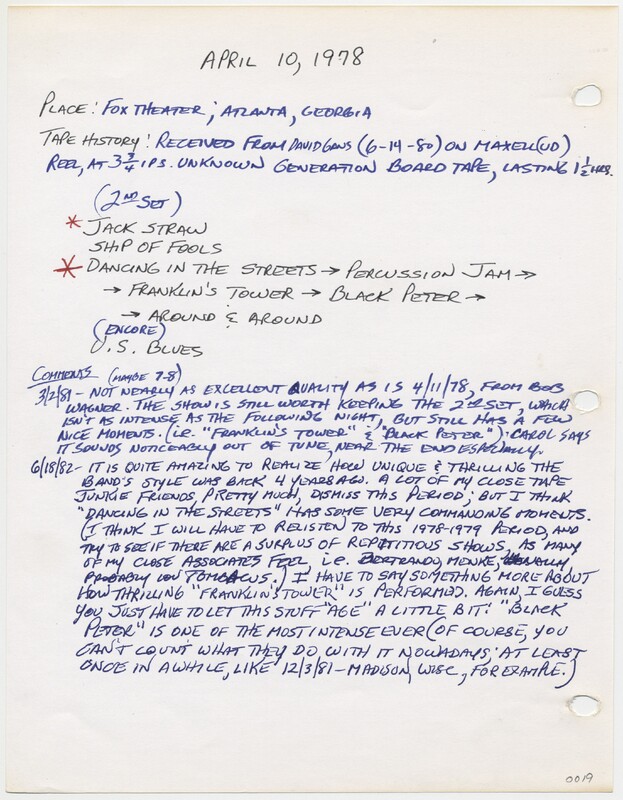 APRIL 10, 1978
PLACE: FOX THEATER; ATLANTA, GEORGIA
TAPE HISTORY: RECEIVED FROM DAVID GANS (6-14-80) ON MAXELL (UD)
REEL, AT 3 3/4 IPS. UNKNOWN GENERATION BOARD TAPE, LASTING 1 1/2 HRS.
(2ND SET)
* JACK STRAW
SHIP OF FOOLS
* DANCING IN THE STREETS → PERCUSSION JAM →
→ FRANKLIN'S TOWER → BLACK PETER →
→ AROUND & AROUND
(ENCORE)
U.S. BLUES
COMMENTS (MAYBE 7-8)
3/2/81 - NOT NEARLY AS EXCELLENT QUALITY AS IS 4/11/78, FROM BOB
WAGNER. THE SHOW IS STILL WORTH KEEPING THE 2ND SET, WHICH
ISN'T AS INTENSE AS THE FOLLOWING NIGHT, BUT STILL HAS A FEW
NICE MOMENTS. (i.e. "FRANKLIN'S TOWER" & "BLACK PETER"). CAROL SAYS
IT SOUNDS NOTICEABLY OUT OF TUNE, NEAR THE END ESPECIALLY.
6/18/82 - IT IS QUITE AMAZING TO REALIZE HOW UNIQUE & THRILLING THE
BAND'S STYLE WAS BACK 4 YEARS AGO. A LOT OF MY CLOSE TAPE
JUNGIE FRIENDS, PRETTY MUCH, DISMISS THIS PERIOD; BUT I THINK
"DANCING IN THE STREETS" HAS SOME VERY COMMANDING MOMENTS.
(I THINK I WILL HAVE TO RELISTEN TO THIS 1978-1979 PERIOD, AND
TRY TO SEE IF THERE ARE A SURPLUS OF REPITITIOUS SHOWS, AS MANY
OF MY CLOSE ASSOCIATES FEEL i.e. BERTRANDO, MENKE,
PROBABLY LOU TOMBACUS.) I HAVE TO SAY SOMETHING MORE ABOUT
HOW THRILLING "FRANKLIN'S TOWER" IS PERFORMED. AGAIN, I GUESS
YOU JUST HAVE TO LET THIS STUFF "AGE" A LITTLE BIT! "BLACK
PETER" IS ONE OF THE MOST INTENSE EVER (OF COURSE, YOU
CAN'T COUNT WHAT THEY DO WITH IT NOWADAYS; AT LEAST
ONCE IN A WHILE, LIKE 12/3/81 - MADISON, WISC., FOR EXAMPLE.)
0019